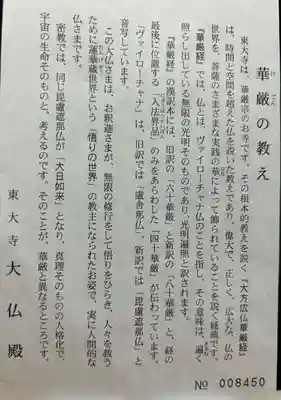 華厳の教え
けごん
東大寺は、華厳宗のお寺です。その根本的教えを説く『大方広仏華厳経』
は、時間と空間を超えた仏を説いた教えであり、偉大で、正しく、広大な、仏の
世界を、菩薩のさまざまな実践の華によって飾られていることを説く経典です。
『華厳経』では、仏とは、ヴァイローチャナ仏のことを指し、その意味は、遍く
照らし出している無限の光明そのものであり、光明遍照と訳されます。
『華厳経』の漢訳本には、旧訳の「六十華厳」と新訳の「八十華厳」と、経の
最後に位置する「入法界品」のみをあらわした「四十華厳」が伝わっています。
「ヴァイローチャナ」は、旧訳では「盧舎那仏」、新訳では「毘盧遮那仏」と
音写しています。
この大仏さまは、お釈迦さまが、無限の修行をして悟りをひらき、人々を救う
ために蓮華蔵世界という「悟りの世界」の教主になられたお姿で、実に人間的な
仏さまです。
密教では、同じ毘盧遮那仏が「大日如来」となり、真理そのものの人格化で、
宇宙の生命そのものと、考えるのです。そのことが、華厳と異なるところです。
東大寺 大仏殿
№ 008450